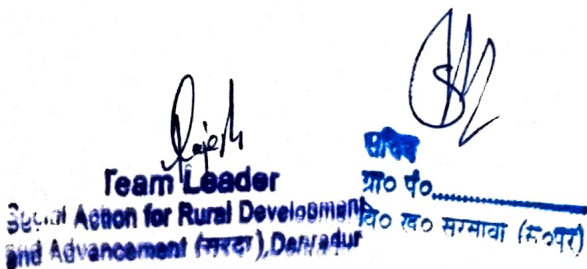 Rajesh
Team Leader
Social Action for Rural Development
and Advancement (सरदा), Dehradun
सचिव
ग्रा० पं०..............
वि० ख० सरसावा (स०पुर)